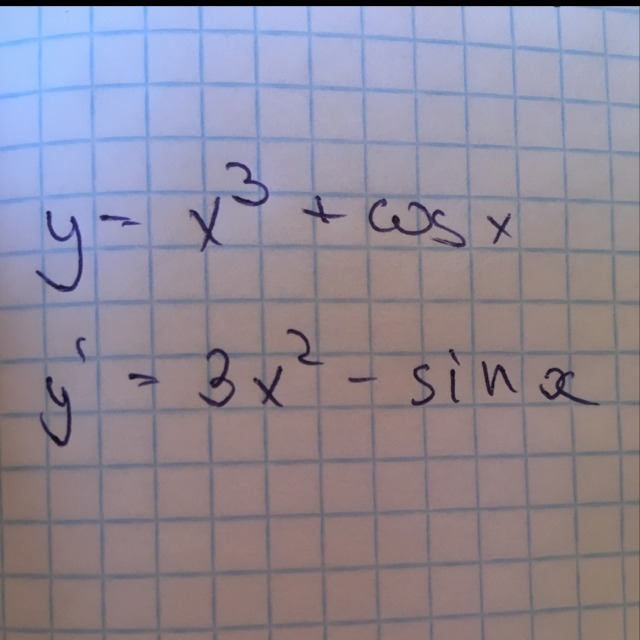 y = x³ + cos x
y' = 3x² - sin x